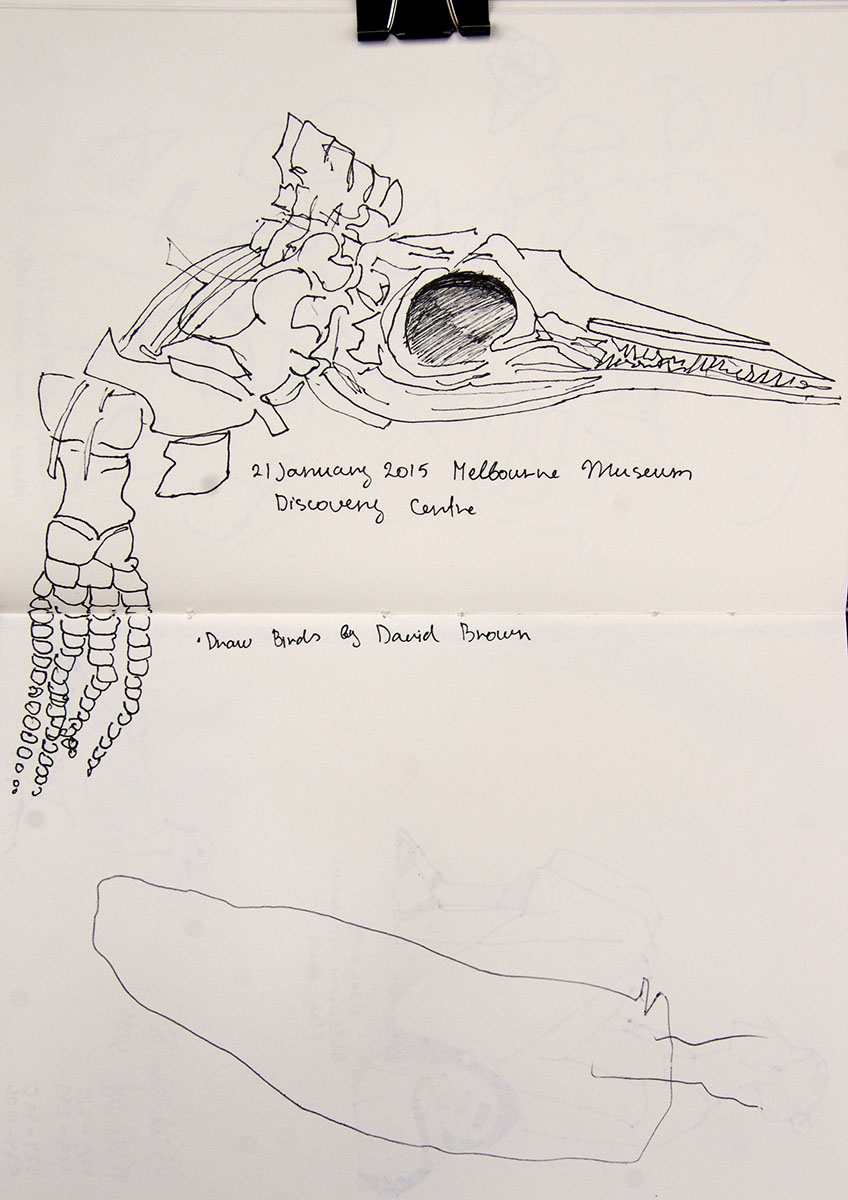 21 January 2015 Melbourne Museum
Discovery Centre
• Draw Birds by David Brown